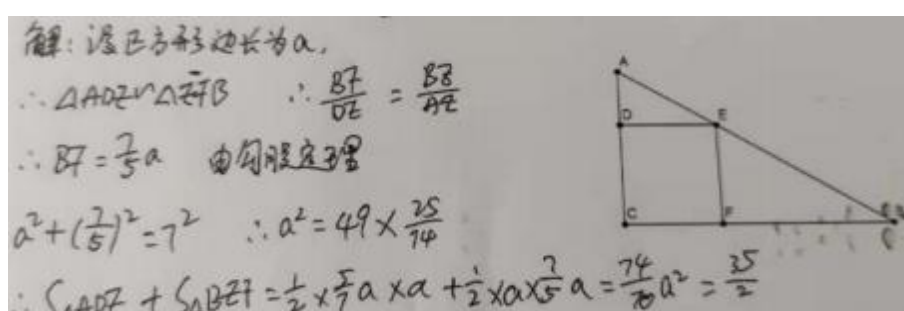 解：设正方形边长为a.
∴ △ADE∽△EFB ∴ BF/DE = BE/AE
∴ BF = 7/5 a 由勾股定理
a² + (7/5)² = 7² ∴ a² = 49 × 25/74
∴ S△ADE + S△BEF = 1/2 × 5/7 a × a + 1/2 × a × 7/5 a = 74/70 a² = 35/2
A
D E
C F